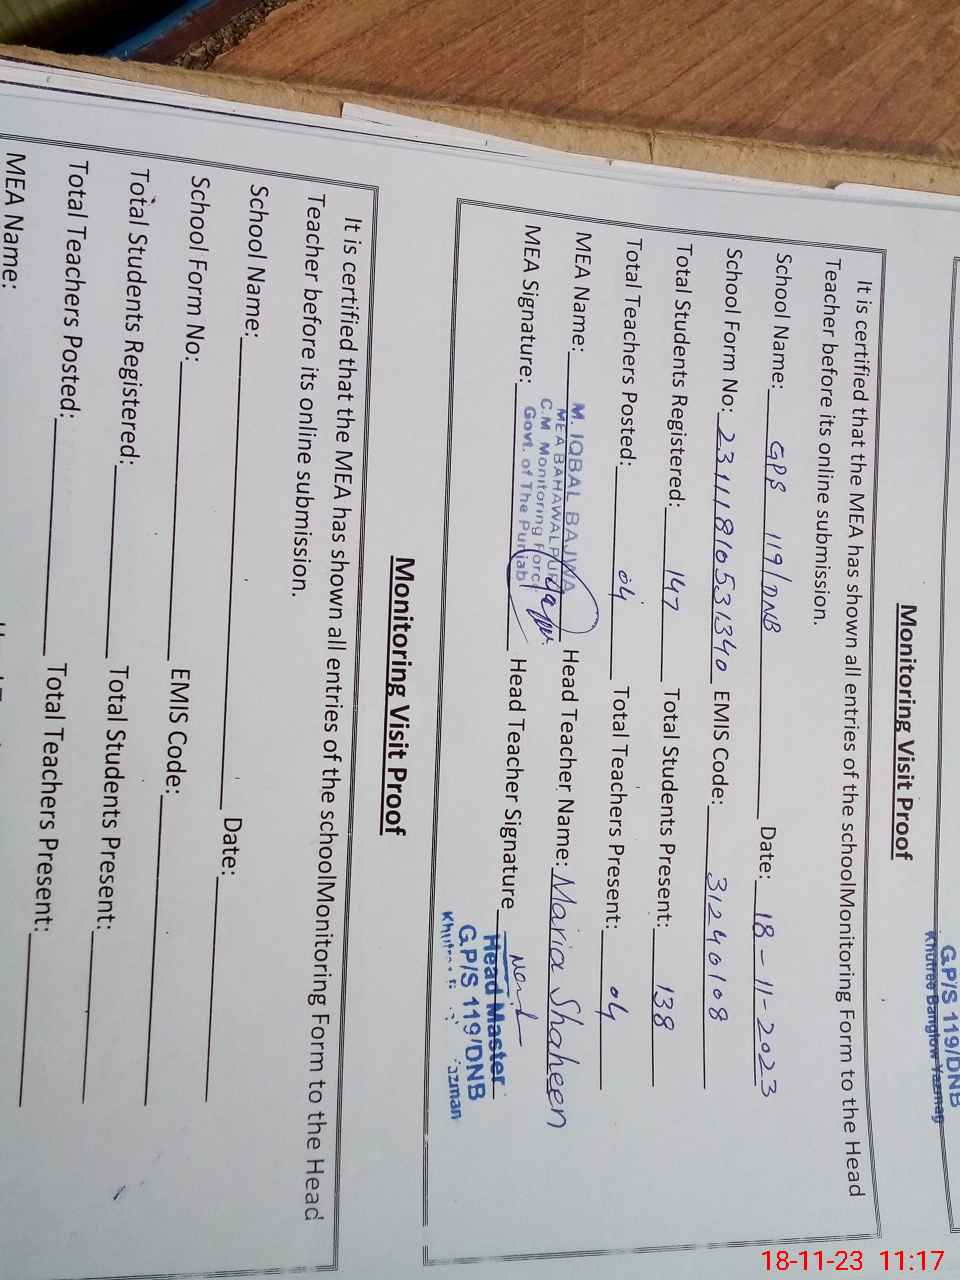 G.P/S 119/DNB
Khutree Banglow Yazmag
Monitoring Visit Proof
It is certified that the MEA has shown all entries of the schoolMonitoring Form to the Head
Teacher before its online submission.
School Name: GPS 119/DNB Date: 18-11-2023
School Form No: 23111810531340 EMIS Code: 31240108
Total Students Registered: 147 Total Students Present: 138
Total Teachers Posted: 04 Total Teachers Present: 04
MEA Name: Head Teacher Name: Maria Shaheen
M. IQBAL BAJWA
MEA BAHAWALPUR
C.M Monitoring Force
Govt. of The Punjab
MEA Signature: Head Teacher Signature
Head Master
G.P/S 119/DNB
Monitoring Visit Proof
It is certified that the MEA has shown all entries of the schoolMonitoring Form to the Head
Teacher before its online submission.
School Name: Date:
School Form No: EMIS Code:
Total Students Registered: Total Students Present:
Total Teachers Posted: Total Teachers Present:
MEA Name:
18-11-23 11:17